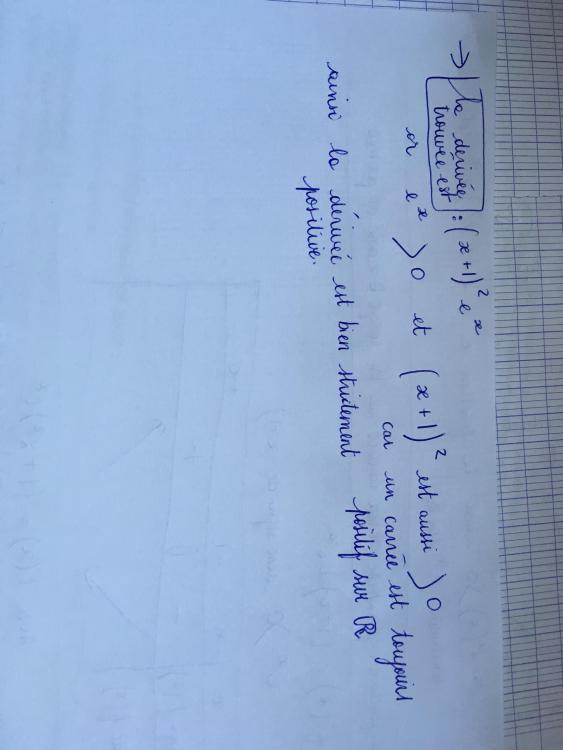 → La dérivée
trouvée est : (x+1)² e^x
or e^x > 0 et (x+1)² est aussi > 0
car un carrée est toujours
positif sur ℝ
ainsi la dérivée est bien strictement
positive.